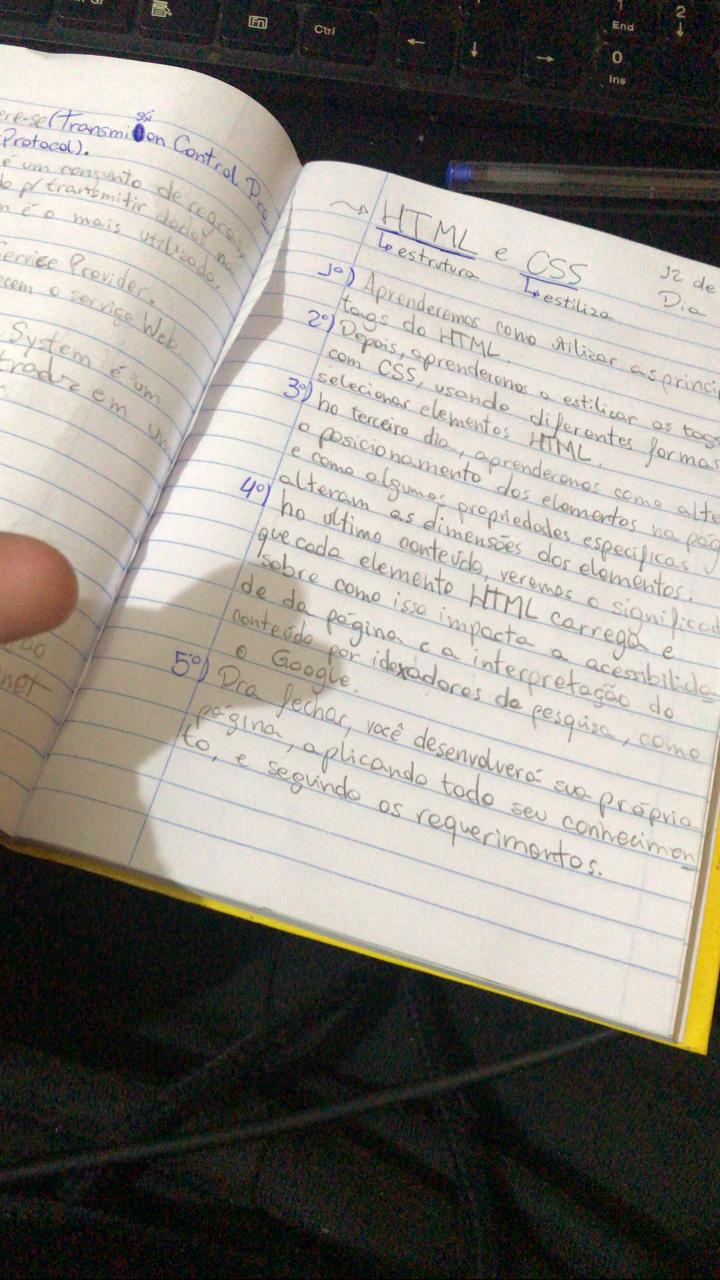 Fn
Ctrl
←
↓
→
1
End
0
Ins
2
↓
ere-se (Transmi on Control Pro
ssi
Protocol).
é um conjunto de regras,
p/ transmitir dados na
m é o mais utilizado.
Service Provider.
ecem o serviço Web
System é um
traduz em
não
net
HTML e CSS
↳ estrutura
↳ estiliza
12 de
Dia
1º) Aprenderemos como utilizar as princi
tags do HTML.
2º) Depois, aprenderemos a estilizar as tags
com CSS, usando diferentes formas
selecionar elementos HTML.
3º) No terceiro dia, aprenderemos como alte
o posicionamento dos elementos na pág
e como algumas propriedades específicas
alteram as dimensões dos elementos.
4º) No ultimo conteúdo, veremos o significad
que cada elemento HTML carrega e
sobre como isso impacta a acessibilida-
de da página e a interpretação do
conteúdo por idexadores de pesquisa, como
o Google.
5º) Pra fechar, você desenvolverá sua própria
página, aplicando todo seu conhecimen
to, e seguindo os requerimentos.